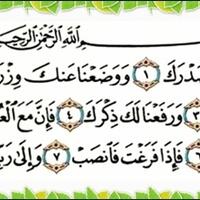 اللَّهِ الرَّحْمَٰنِ الرَّحِي
صَدْرَكَ ١ وَوَضَعْنَا عَنكَ وِزْرَ
٣ وَرَفَعْنَا لَكَ ذِكْرَكَ ٤ فَإِنَّ مَعَ الْعُ
٦ فَإِذَا فَرَغْتَ فَانصَبْ ٧ وَإِلَىٰ رَبِّ